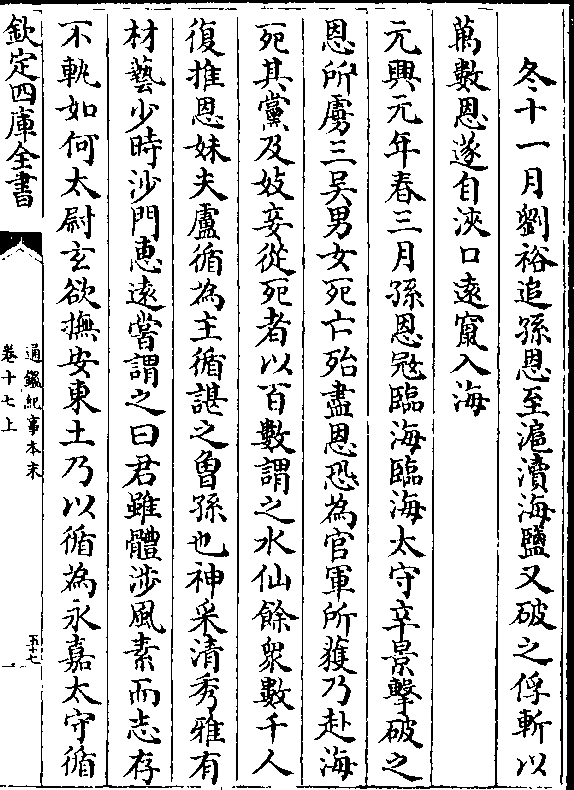 冬十一月劉裕追孫恩至滬瀆海鹽又破之俘斬以
萬數恩遂自浹口遠竄入海
元興元年春三月孫恩冦臨海臨海太守辛景擊破之
恩所虜三吳男女死亡殆盡恩恐為官軍所獲乃赴海
死其黨及妓妾從死者以百數謂之水仙餘衆數千人
復推恩妹夫盧循為主循諶之曾孫也神采清秀雅有
材藝少時沙門惠遠嘗謂之曰君雖體涉風素而志存
不軌如何太尉玄欲撫安東土乃以循為永嘉太守循
欽定四庫全書
通鑑紀事本末
卷十七上
五十七